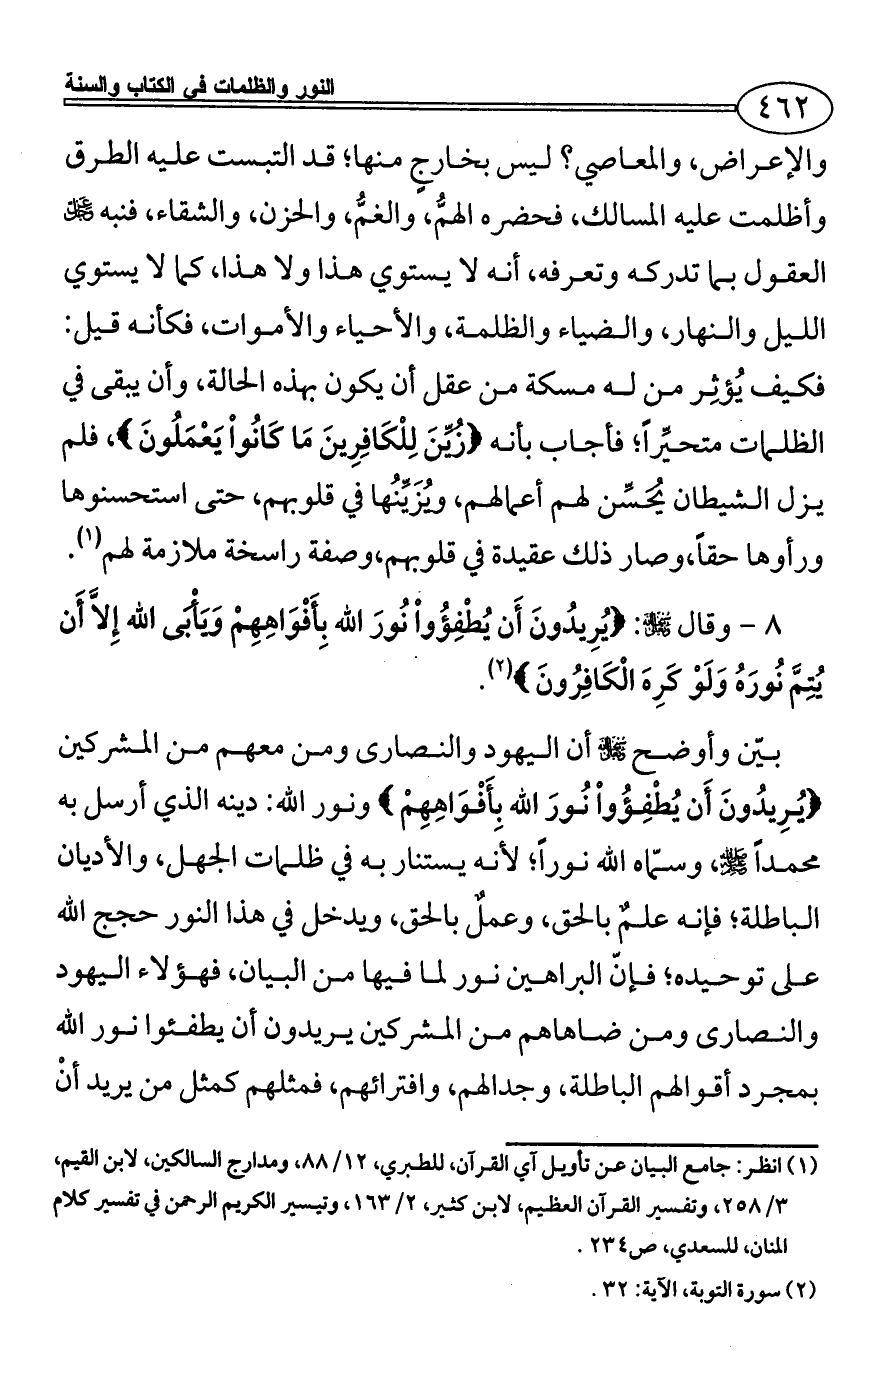 النور والظلمات في الكتاب والسنة
٤٦٢
والإعراض، والمعاصي؟ ليس بخارجٍ منها؛ قد التبست عليه الطرق
وأظلمت عليه المسالك، فحضره الهمُّ، والغمُّ، والحزن، والشقاء، فنبه ﷻ
العقول بما تدركه وتعرفه، أنه لا يستوي هذا ولا هذا، كما لا يستوي
الليل والنهار، والضياء والظلمة، والأحياء والأموات، فكأنه قيل:
فكيف يُؤثِر من له مسكة من عقل أن يكون بهذه الحالة، وأن يبقى في
الظلمات متحيِّراً؛ فأجاب بأنه ﴿زُيِّنَ لِلْكَافِرِينَ مَا كَانُواْ يَعْمَلُونَ﴾، فلم
يزل الشيطان يُحَسِّن لهم أعمالهم، ويُزَيِّنُها في قلوبهم، حتى استحسنوها
ورأوها حقاً،وصار ذلك عقيدة في قلوبهم،وصفة راسخة ملازمة لهم(١).
٨ – وقال ﷻ: ﴿يُرِيدُونَ أَن يُطْفِؤُواْ نُورَ الله بِأَفْوَاهِهِمْ وَيَأْبَى الله إِلاَّ أَن
يُتِمَّ نُورَهُ وَلَوْ كَرِهَ الْكَافِرُونَ﴾(٢).
بيّن وأوضح ﷻ أن اليهود والنصارى ومن معهم من المشركين
﴿يُرِيدُونَ أَن يُطْفِؤُواْ نُورَ الله بِأَفْوَاهِهِمْ﴾ ونور الله: دينه الذي أرسل به
محمداً ﷺ، وسمّاه الله نوراً؛ لأنه يستنار به في ظلمات الجهل، والأديان
الباطلة؛ فإنه علمٌ بالحق، وعملٌ بالحق، ويدخل في هذا النور حجج الله
على توحيده؛ فإنّ البراهين نور لما فيها من البيان، فهؤلاء اليهود
والنصارى ومن ضاهاهم من المشركين يريدون أن يطفئوا نور الله
بمجرد أقوالهم الباطلة، وجدالهم، وافترائهم، فمثلهم كمثل من يريد أنْ
(١) انظر: جامع البيان عن تأويل آي القرآن، للطبري، ١٢/ ٨٨، ومدارج السالكين، لابن القيم،
٣/ ٢٥٨، وتفسير القرآن العظيم، لابن كثير، ٢/ ١٦٣، وتيسير الكريم الرحمن في تفسير كلام
المنان، للسعدي، ص٢٣٤ .
(٢) سورة التوبة، الآية: ٣٢ .